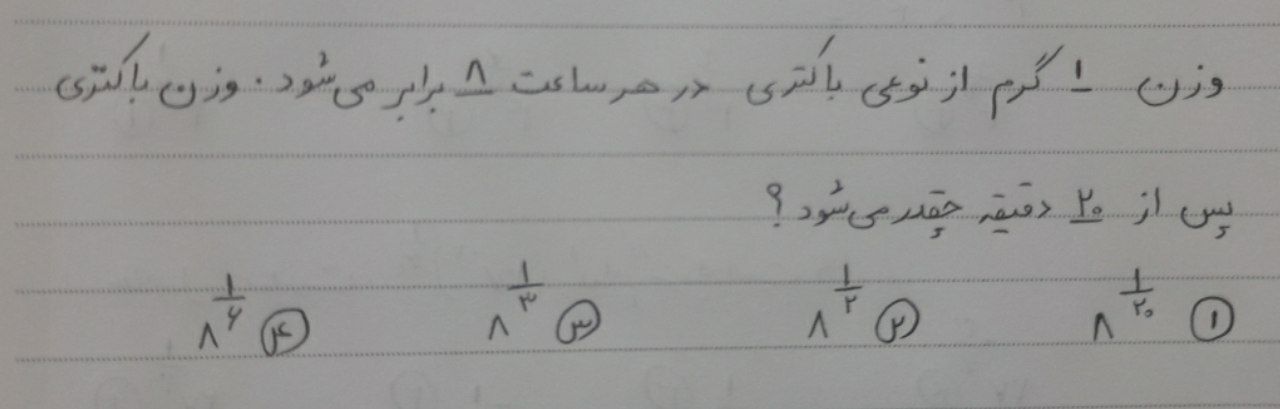 وزن ۱ گرم از نوعی باکتری در هر ساعت ۸ برابر می‌شود. وزن باکتری
پس از ۲۰ دقیقه چقدر می‌شود؟
۱) ۸^{۱/۲۰} ۲) ۸^{۱/۲} ۳) ۸^{۱/۳} ۴) ۸^{۱/۶}